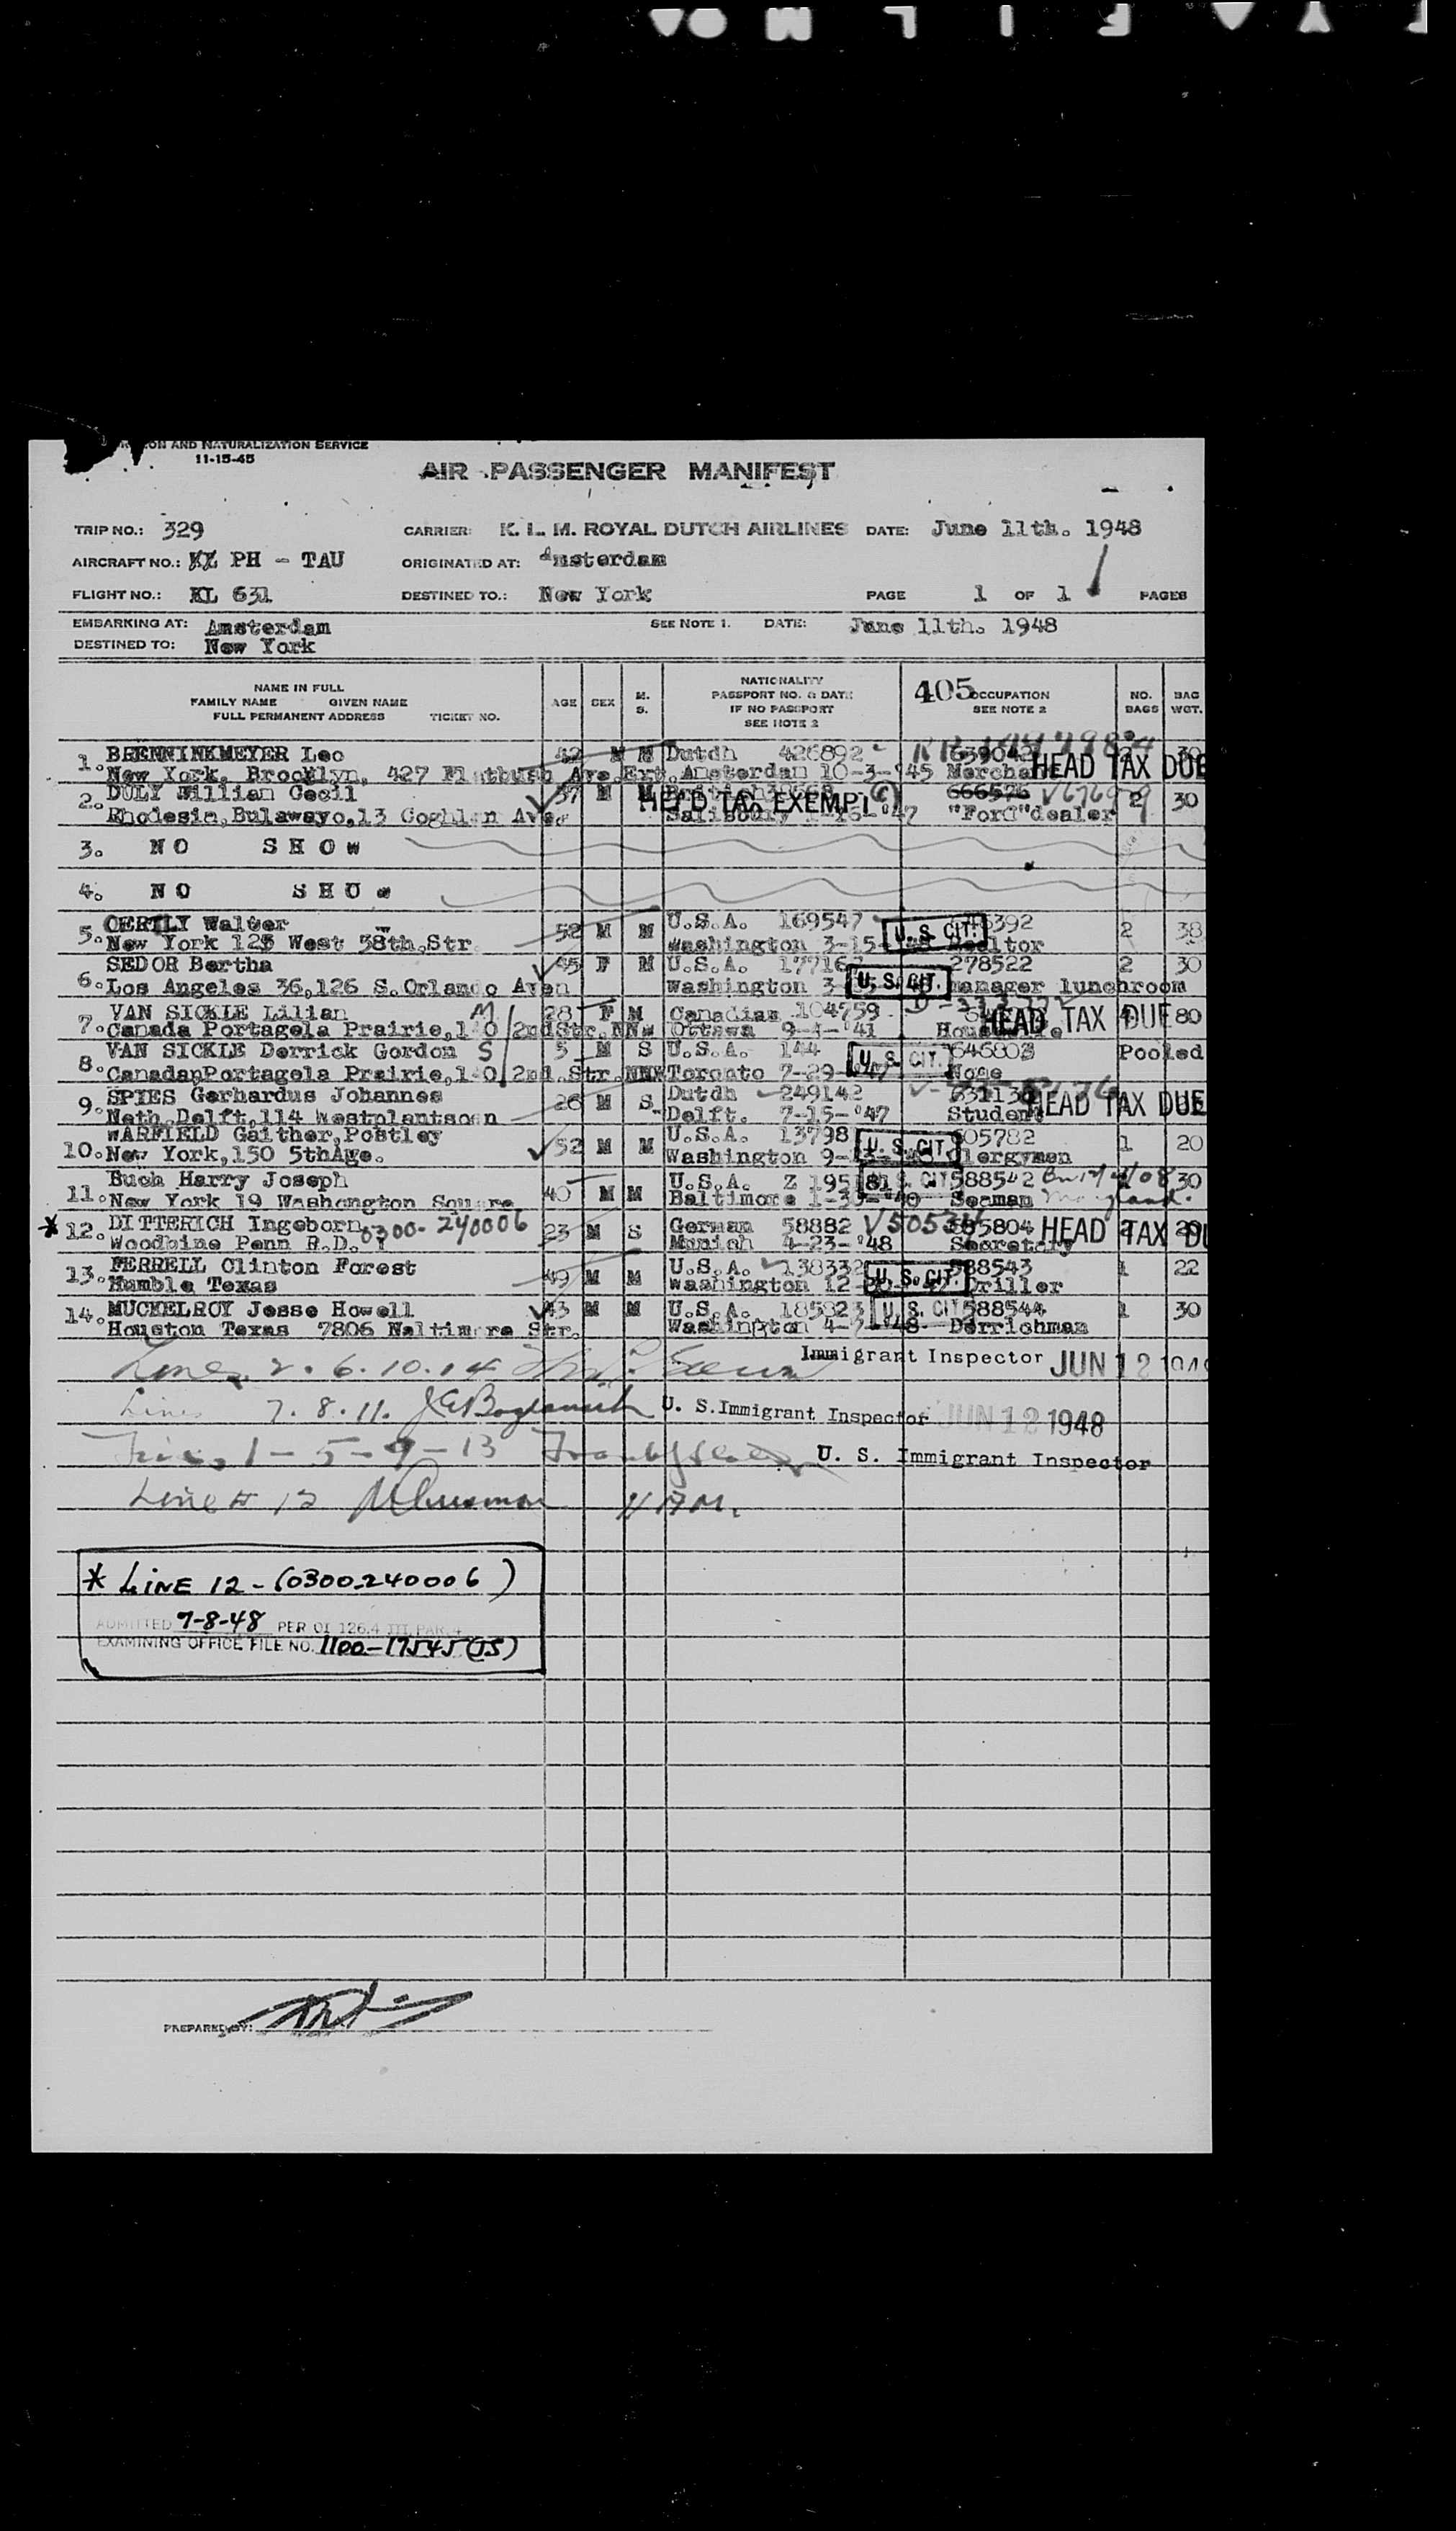 ON AND NATURALIZATION SERVICE
11-15-45
AIR PASSENGER MANIFEST
TRIP NO.: 329 CARRIER: K. L. M. ROYAL DUTCH AIRLINES DATE: June 11th. 1948
AIRCRAFT NO.: PH - TAU ORIGINATED AT: Amsterdam
FLIGHT NO.: KL 631 DESTINED TO.: New York PAGE 1 OF 1 PAGES
EMBARKING AT: Amsterdam SEE NOTE 1. DATE: June 11th. 1948
DESTINED TO: New York
NAME IN FULL
FAMILY NAME GIVEN NAME
FULL PERMANENT ADDRESS TICKET NO.
AGE SEX M. S.
NATIONALITY
PASSPORT NO. & DATE
IF NO PASSPORT
SEE NOTE 2
405 OCCUPATION
SEE NOTE 2
NO. BAGS
BAG WGT.
1. BRENNINKMEYER Leo 42 M M Dutch 426892 639042 2 30
New York, Brooklyn, 427 Flatbush Ave.Ext. Amsterdam 10-3-'45 HEAD TAX DUE
2. DULY William Cecil 57 M M 666576 2 30
Rhodesia,Bulawayo,13 Coghlan Ave. HEAD TAX EXEMPT Salisbury "Ford"dealer
3. NO SHOW
4. NO SHOW
5. OERTLY Walter 52 M M U.S.A. 169547 U. S. CIT. 2 38
New York 125 West 38th.Str. Washington 3-15- Realtor
6. SEDOR Bertha 45 F M U.S.A. 278522 2 30
Los Angeles 36,126 S.Orlando Aven Washington U. S. CIT. manager lunchroom
7. VAN SICKLE Lilian M 28 F M Canadian 104759 HEAD TAX DUE 80
Canada Portagela Prairie,140 2ndStr.NNw Ottawa 9-4-'41
8. VAN SICKLE Derrick Gordon S 5 M S U.S.A. 144 U. S. CIT. 646803 Pooled
Canada,Portagela Prairie,140 2nd.Str.NNW Toronto 7-29- None
9. SPIES Gerhardus Johannes 26 M S Dutch 249142 HEAD TAX DUE
Neth.Delft,114 Westplantsoen Delft. 7-15-'47 Student
10. WARFIELD Gaither,Postley 52 M M U.S.A. 605782 1 20
New York,150 5thAge. Washington U. S. CIT. Clergyman
11. Buch Harry Joseph 40 M M U.S.A. Z 588542 30
New York 19 Washongton Square Baltimore Seaman
* 12. DITTERICH Ingeborn 0300-240006 23 M S German 58882 HEAD TAX DU
Woodbine Penn R.D. 1 Munich 4-23-'48 Secretary
13. FERRELL Clinton Forest 49 M M U.S.A. 138332 588543 1 22
Humble Texas Washington U. S. CIT. Driller
14. MUCKELROY Jesse Howell 43 M M U.S.A. 185823 U. S. CIT 588544 1 30
Houston Texas 7806 Naltimore Str. Washington Derrichman
Lines 2. 6. 10. 14 Immigrant Inspector JUN 12
Lines 7. 8. 11. U. S. Immigrant Inspector JUN 12 1948
1-5-9-13 U. S. Immigrant Inspector
Line # 12
* LINE 12-(0300-240006)
ADMITTED 7-8-48 PER OI 126.4 III PAR. 4
EXAMINING OFFICE FILE NO. 1100-17545(JS)
PREPARED BY: